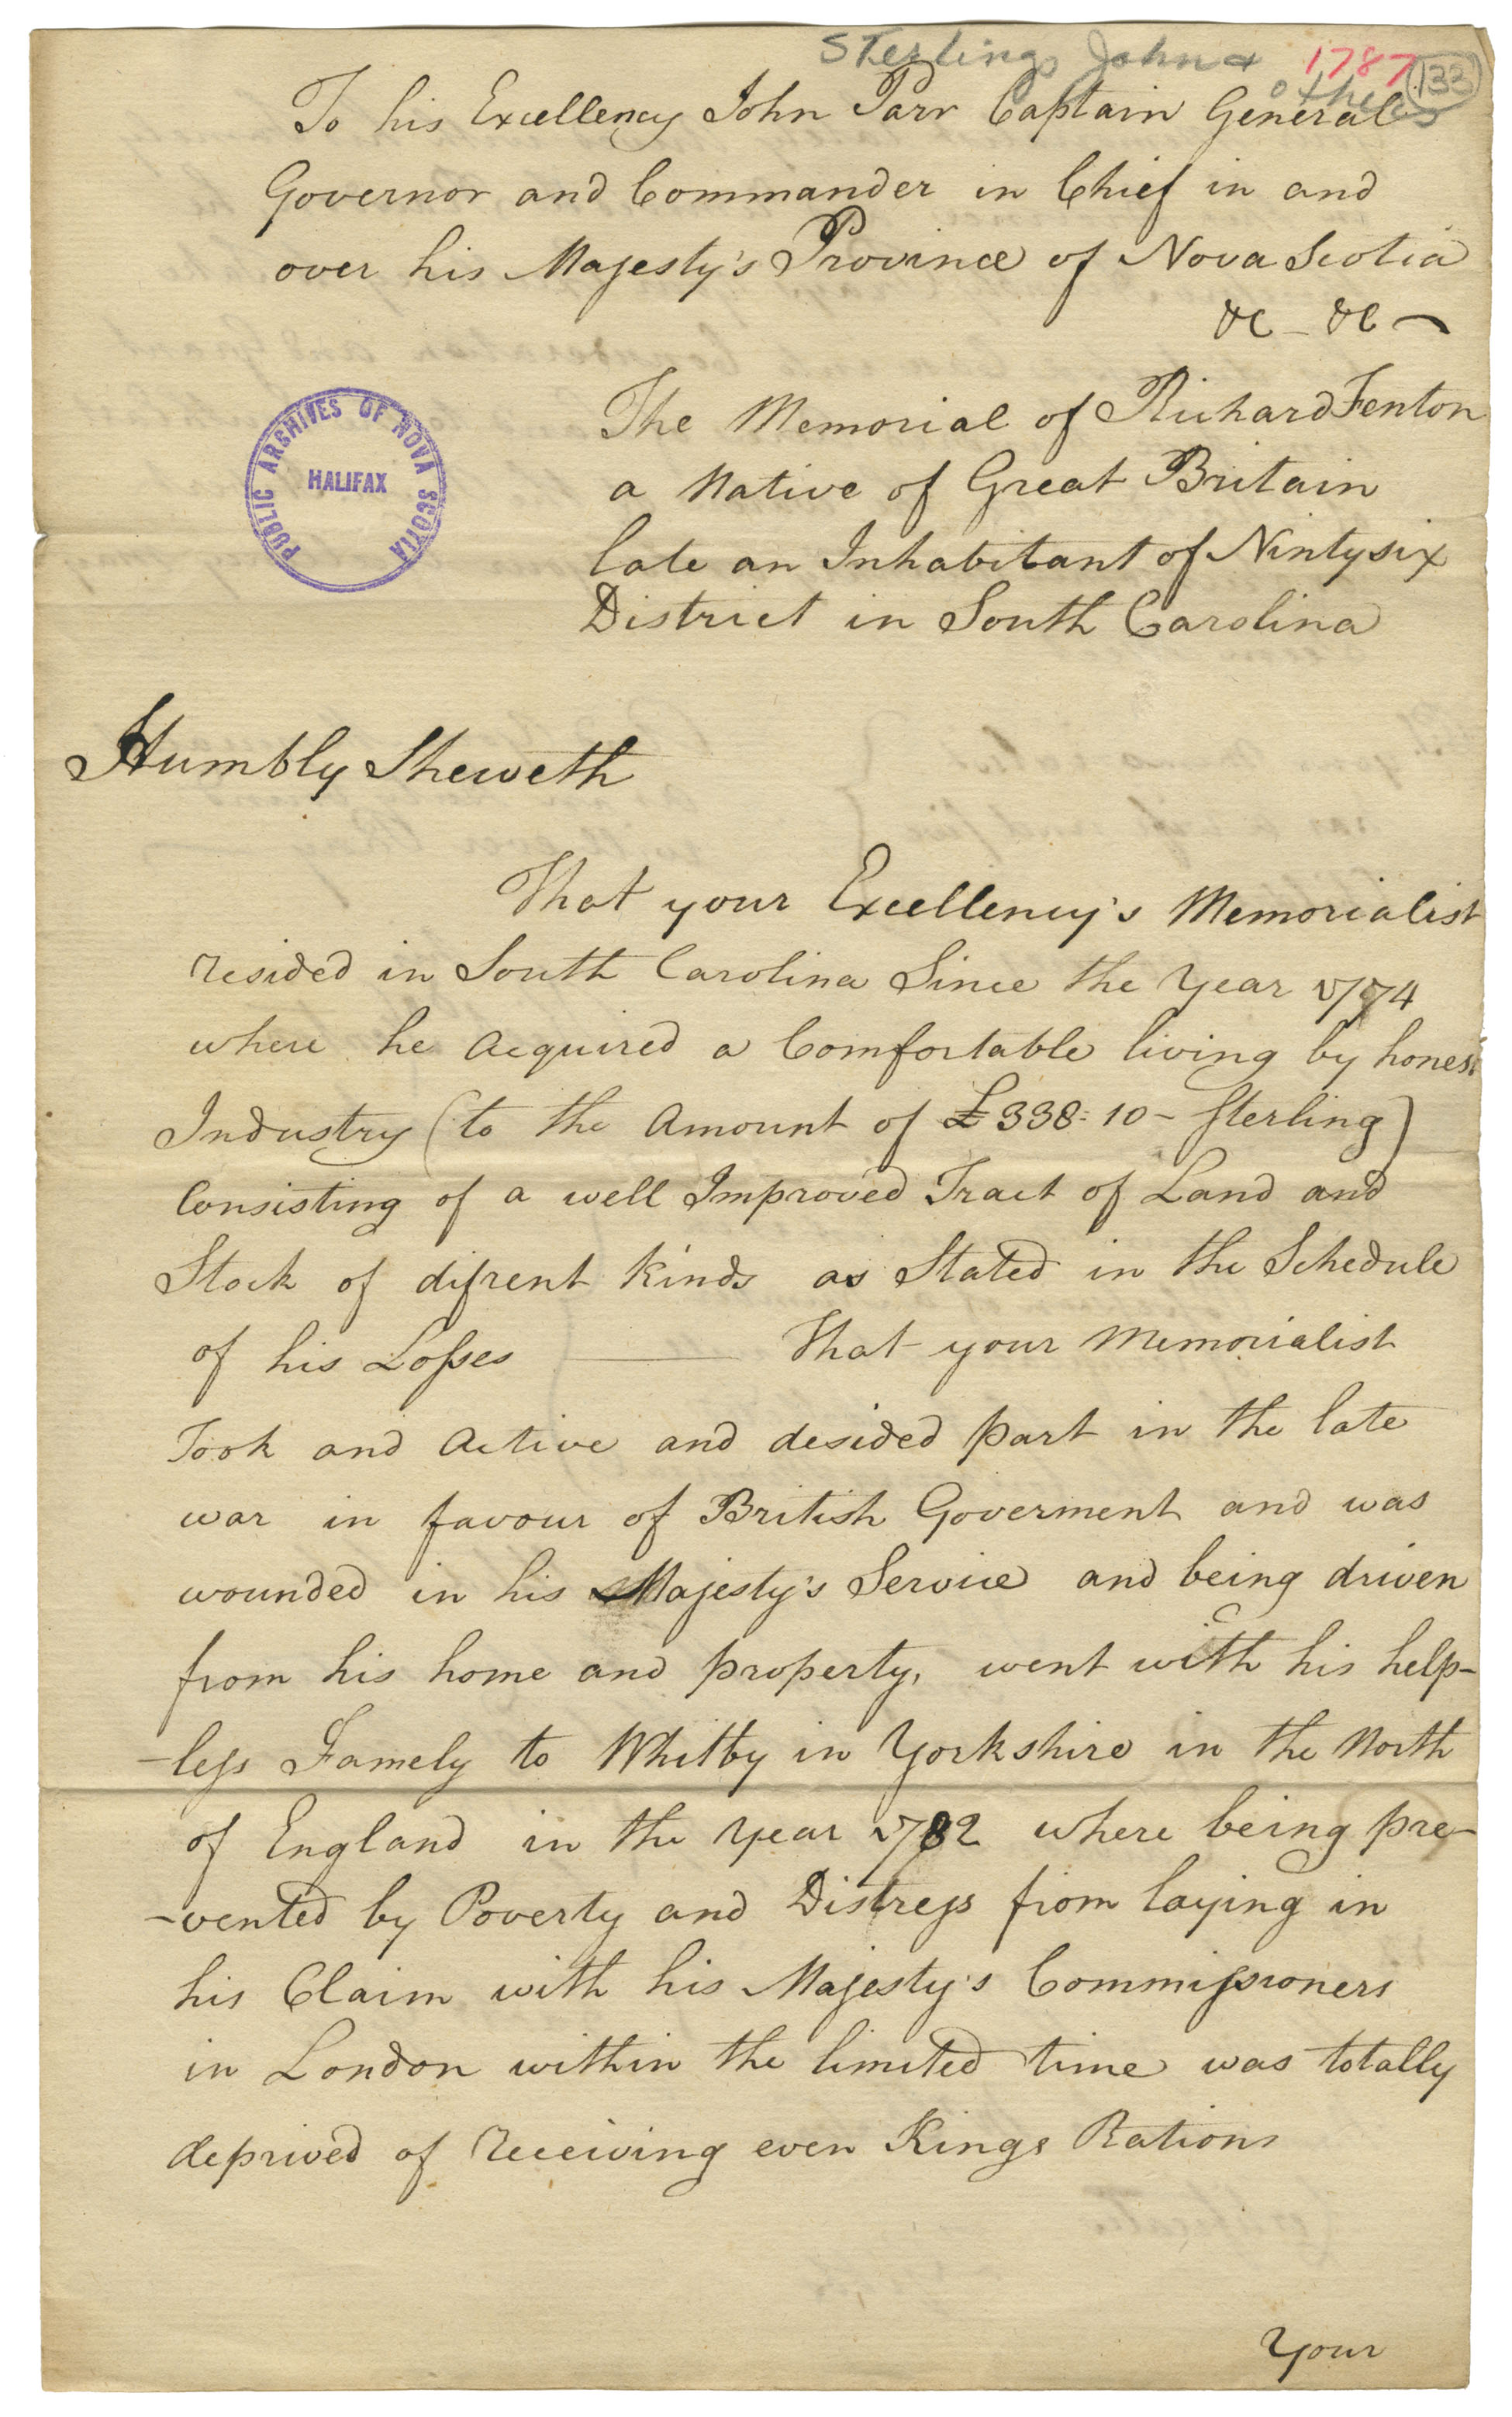 Sterlings John & others
1787
132
To his Excellency John Parr Captain General
Governor and Commander in Chief in and
over his Majesty's Province of Nova Scotia
&c - &c -
PUBLIC ARCHIVES OF NOVA SCOTIA
HALIFAX
The Memorial of Richard Fenton
a Native of Great Britain
late an Inhabitant of Nintysix
District in South Carolina
Humbly Sheweth
That your Excellency's Memorialist
resided in South Carolina Since the Year 1774
where he Acquired a Comfortable living by honest
Industry (to the Amount of £338-10- Sterling)
Consisting of a well Improved Tract of Land and
Stock of difrent Kinds as Stated in the Schedule
of his Loſses —— That your Memorialist
Took and Active and desided part in the late
war in favour of British Goverment and was
wounded in his Majesty's Service and being driven
from his home and property, went with his help-
-leſs Famely to Whitby in Yorkshire in the North
of England in the Year 1782 where being pre-
-vented by Poverty and Distreſs from laying in
his Claim with his Majesty's Commiſsioners
in London within the limited time was totally
deprived of receiving even Kings Rations
Your